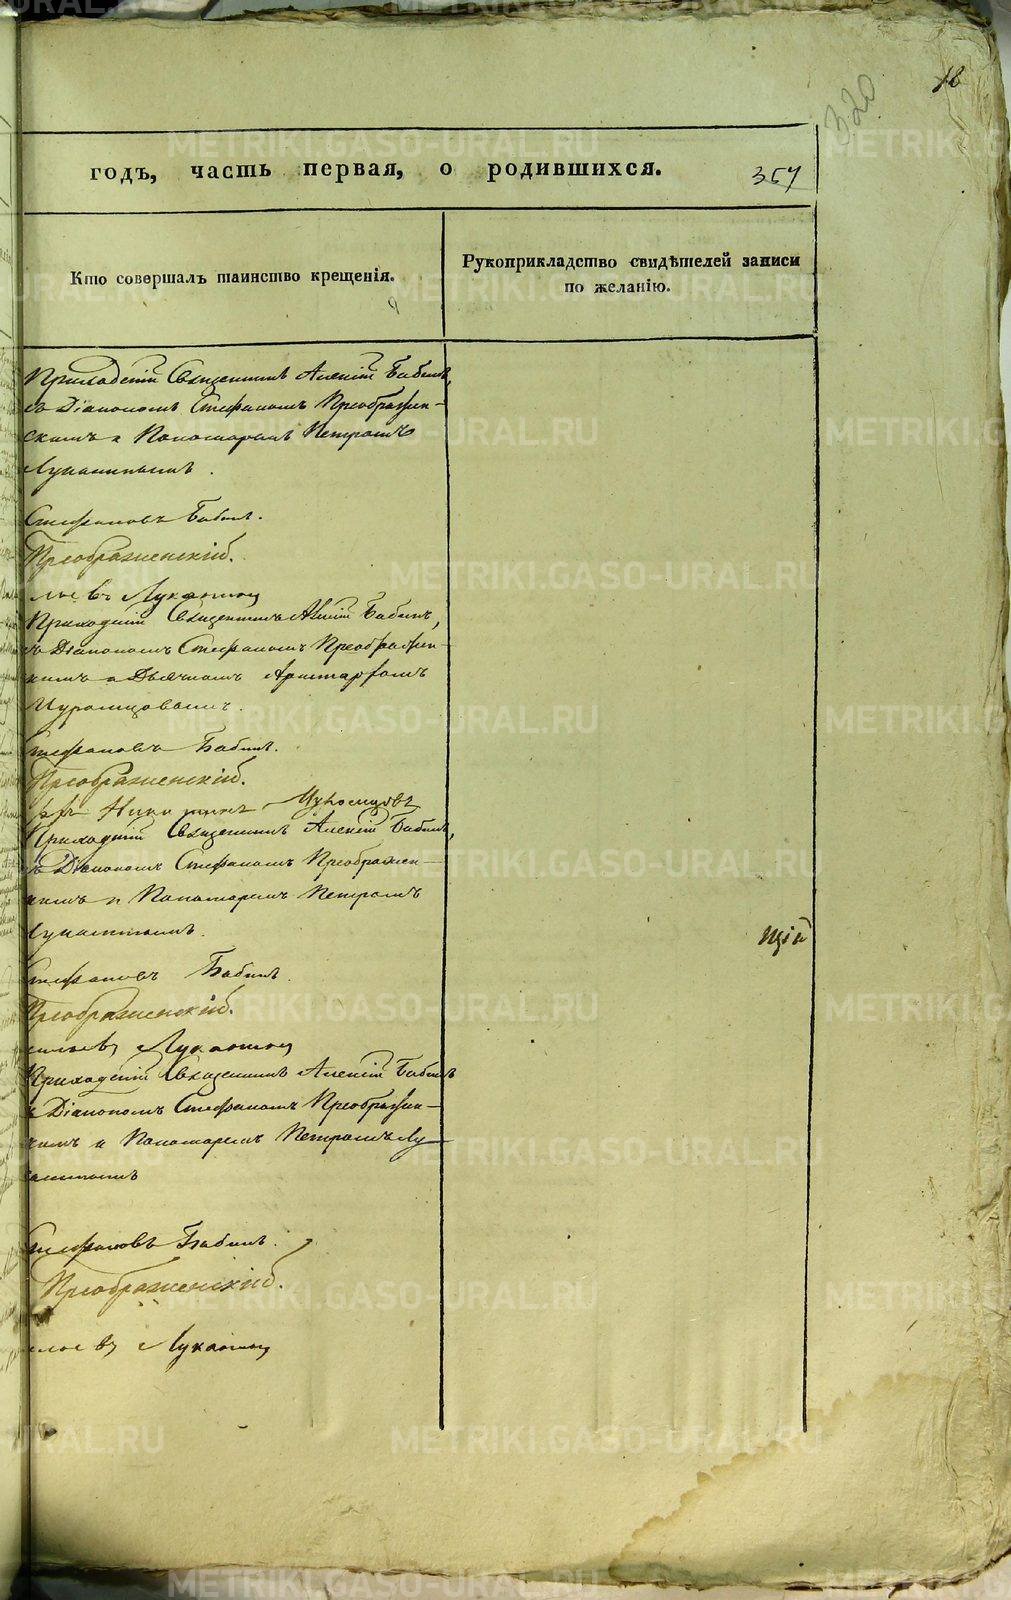 18
320
годъ, часть первая, о родившихся.
357
Кто совершалъ таинство крещенія.
Рукоприкладство свидѣтелей записи
по желанію.
Приходскій Священникъ Алексій Бабинъ,
съ Діакономъ Стефаномъ Преображен-
скимъ и Пономаремъ Петромъ
Луканинымъ.
Стефановъ Бабинъ.
Преображенскій.
Луканинъ
Приходскій Священникъ Алексій Бабинъ,
съ Діакономъ Стефаномъ Преображен-
кимъ и Дьячкомъ Аристархомъ
Стефановъ Бабинъ.
Преображенскій.
Приходскій Священникъ Алексій Бабинъ,
съ Діакономъ Стефаномъ Преображен-
кимъ и Пономаремъ Петромъ
Луканинымъ.
Стефановъ Бабинъ.
Преображенскій.
Луканинъ
щій
Приходскій Священникъ Алексій Бабинъ
съ Діакономъ Стефаномъ Преображен-
кимъ и Пономаремъ Петромъ Лу-
канинымъ
Стефановъ Бабинъ.
Преображенскій.
Луканинъ
METRIKI.GASO-URAL.RU